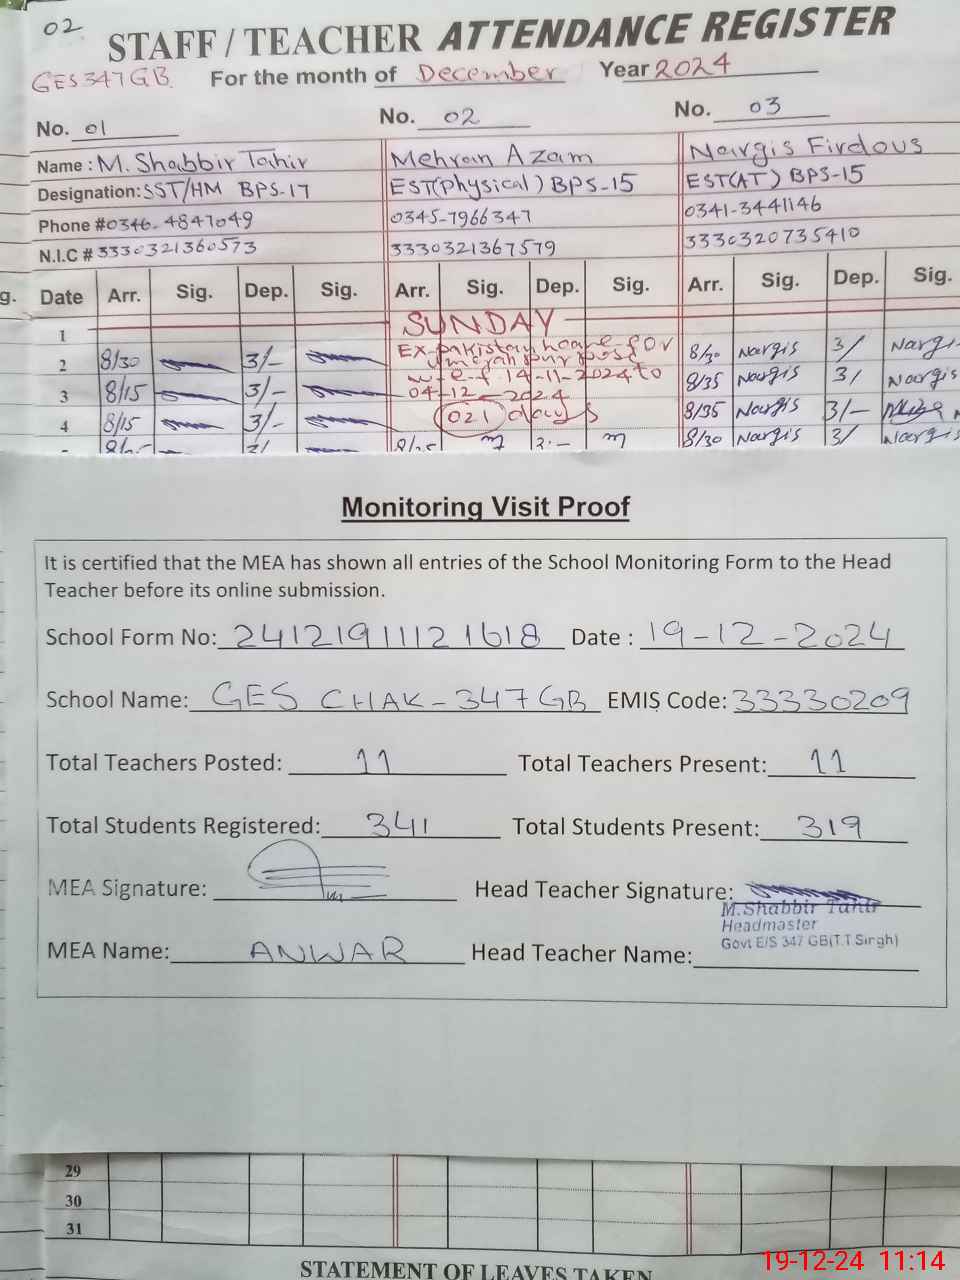 02
STAFF / TEACHER ATTENDANCE REGISTER
GES 347 GB For the month of December Year 2024
No. 01 No. 02 No. 03
Name : M. Shabbir Tahir Mehran Azam Nargis Firdous
Designation: SST/HM BPS-17 EST(Physical) BPS-15 EST(AT) BPS-15
Phone # 0346-4847049 0345-7966347 0341-3441146
N.I.C # 3330321360573 3330321367579 3330320735410
g. Date Arr. Sig. Dep. Sig. Arr. Sig. Dep. Sig. Arr. Sig. Dep. Sig.
1 SUNDAY
2 8/30 3/- Ex-pakistan leave for 8/30 Nargis 3/ Nargi
umrah purpose
3 8/15 3/- w.e.f 14-11-2024 to 8/35 Nargis 3/ Nargis
04-12-2024
4 8/15 3/- 021 days 8/35 Nargis 3/-
8/30 Nargis 3/ Nargis
Monitoring Visit Proof
It is certified that the MEA has shown all entries of the School Monitoring Form to the Head
Teacher before its online submission.
School Form No: 24121911121618 Date : 19-12-2024
School Name: GES CHAK-347 GB EMIS Code: 33330209
Total Teachers Posted: 11 Total Teachers Present: 11
Total Students Registered: 341 Total Students Present: 319
MEA Signature: Head Teacher Signature:
M.Shabbir Tahir
Headmaster
Govt E/S 347 GB(T.T.Singh)
MEA Name: ANWAR Head Teacher Name:
29
30
31
STATEMENT OF LEAVES TAKEN
19-12-24 11:14